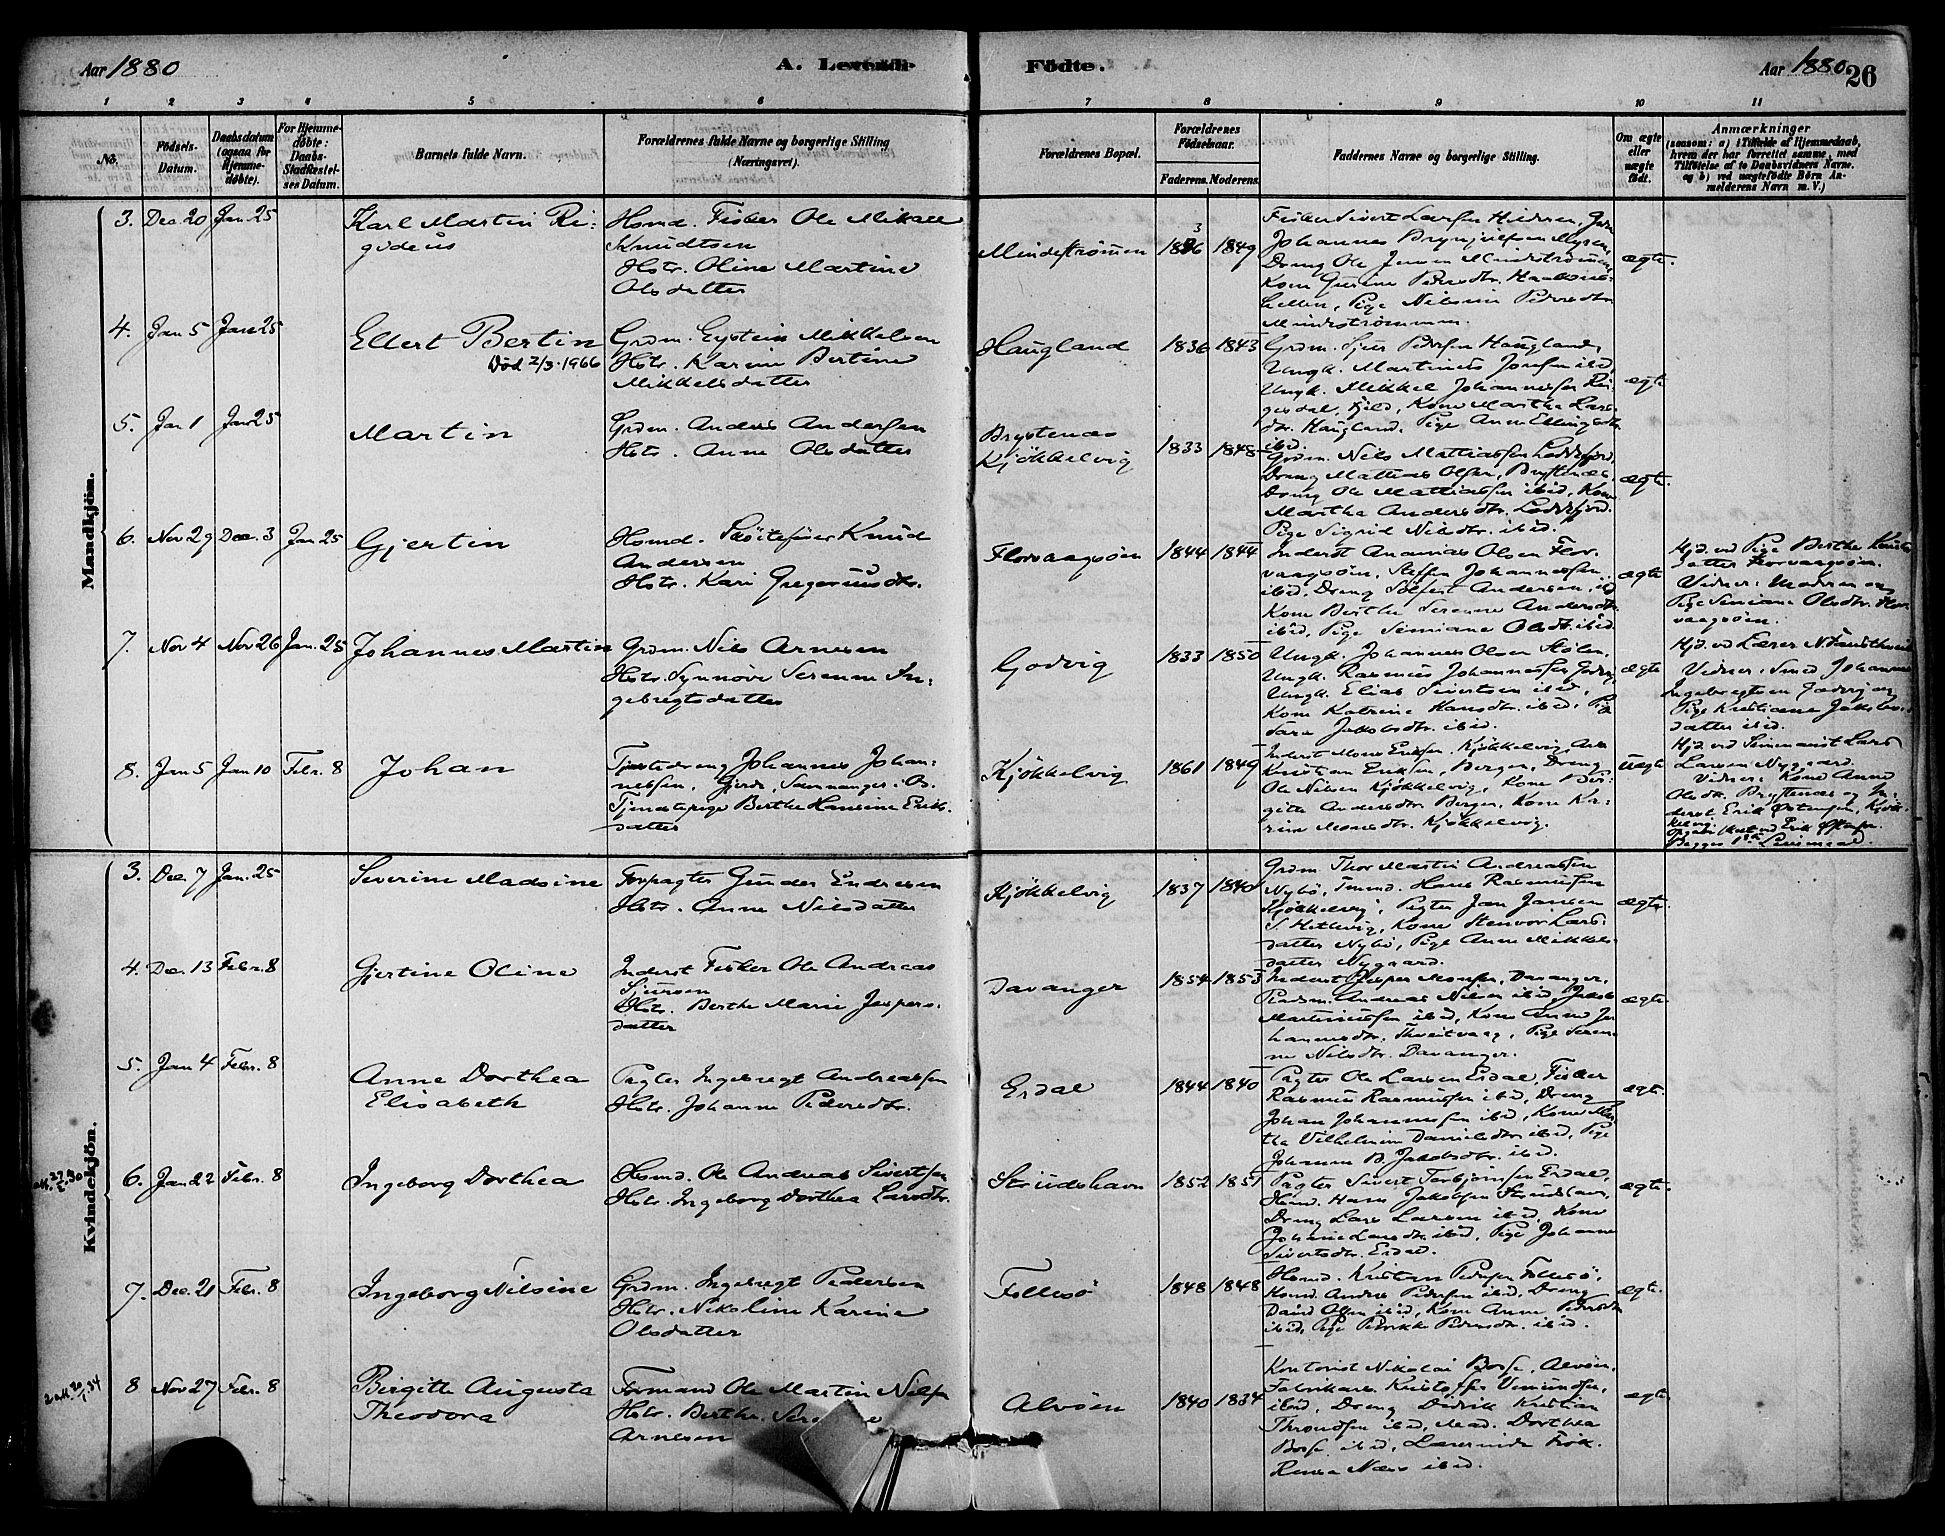 Aar 1880
A. Levende
Födte.
Aar 1880
26
1 2 3 4 5 6 7 8 9 10 11
No.
Födsels-
Datum.
Daabsdatum
(ogsaa for
Hjemme-
döbte).
For Hjemme-
döbte:
Daabs-
Stadfæstel-
ses Datum.
Barnets fulde Navn.
Forældrenes fulde Navne og borgerlige Stilling
(Næringsvei).
Forældrenes Bopæl.
Forældrenes
Födselsaar.
Faderens. Moderens.
Faddernes Navne og borgerlige Stilling.
Om ægte
eller
uægte
födt.
Anmærkninger
(saasom: a) i Tilfælde af Hjemmedaab,
hvem der har forrettet samme, med
Tilföielse af to Daabsvidners Navne.
og b) ved uægtefödte Börn An-
melderens Navn m. V.)
Mandkjön.
3. Dec 20 Jan 25
Karl Martin Ri-
gideus
Hsmd. Fisker Ole Mikal
Knudtsen
Hstr. Oline Martine
Olsdatter
Mindestrømmen
1836 1849
Fisker Sivert Larsen
Johannes Brynjulfsen Myren,
Dreng Ole Jensen Mindestrømmen,
Kone Gurine Pedersdtr.
Pige Nilsine Pedersdtr.
Mindestrømmen.
ægte.
4. Jan 5 Jan 25
Ellert Bertin
Død 2/3 1966
Grdm. Eystein Mikkelsen
Hstr. Karine Bertine
Mikkelsdatter
Haugland
1836 1843
Grdm. Sjur Pedersen Haugland,
Ungk. Martinus Jonsen ibid,
Ungk. Mikkel Johannessen
Kone Martha Lars-
dtr. Haugland, Pige Anne Ellingsdtr.
ibid.
ægte
5. Jan 1 Jan 25
Martin
Grdm. Anders Andersen
Hstr. Anne Olsdatter
Brystenæs
Kjøkkelvig
1833 1848
Grdm. Nils Mathiassen Loddefjord,
Dreng Mathias Olsen, Brystenæs,
Dreng Ole Mathiassen ibid, Kone
Martha Andersdtr. Loddefjord.
Pige Sigrid Nilsdtr. ibid.
ægte.
6. Nov 29 Dec. 3 Jan 25
Gjertin
Hsmd. Skøitefører Knud
Andersen
Hstr. Kari Gregoriusdtr.
Florvaagsøen
1844 1844
Inderst Ananias Olsen Flor-
vaagsøen, Steffen Johannessen
ibid, Dreng Salfest Andersen, ibid
Kone Berthe Serene Andersdtr.
ibid, Pige Simiane Olsdtr. ibid
ægte
Hjd. ved Pige Berthe Knuds-
datter Florvaagsøen.
Vidner: Moderen og
Pige Simiane Olsdtr. Flor-
vaagsøen.
7. Nov 4 Nov 26 Jan. 25
Johannes Martin
Grdm. Nils Arnesen
Hstr. Synnøve Serene In-
gebregtsdatter
Godvig
1833 1850
Ungk. Johannes Olsen Stølen,
Ungk. Rasmus Johannessen Godvig,
Ungk. Elias Sivertsen ibid,
Kone Katrine Hansdtr. ibid, Pige
Sara Jakobsdtr. ibid.
ægte
Hjd. ved Lærer N.
Vidner: Smed Johannes
Ingebregtsen Godvig og
Pige Kristiane Jakobs-
datter ibid.
8. Jan 5 Jan 10 Febr. 8
Johan
Tjenestedreng Johannes Johan-
nessen, Gjerde, Samnanger. Os.
Tjenestepige Berthe Hansine Eriks-
datter
Kjøkkelvig
1861 1849
Inderst Mons Eriksen, Kjøkkelvig,
Kristian Eriksen, Bergen, Dreng
Ole Nilsen Kjøkkelvig, Kone Bir-
gitte Andersdtr. Bergen, Kone Ka-
rine Monsdtr. Kjøkkelvig.
uægte
Hjd. ved Seminarist Lars
Larsen Nygaard.
Vidner: Kone Anne
Olsdtr. Brystenæs og In-
derst Erik Kjøk-
kelvig.
Begges 1ste Leiermaal.
Kvindekjön.
3. Dec. 7 Jan. 25
Severine Madsine
Forpagter Gunder Endresen
Hstr. Anne Nilsdatter
Kjøkkelvig
1837 1840
Grdm. Thor Martin Andreassen
Nybø, Hans Rasmussen
Kjøkkelvig, Pagter Jan Jansen
S. Hetlevig, Kone Stenvor Lars-
datter Nybø, Pige Anne Mikkels-
datter Nygaard.
ægte.
4. Dec. 13 Febr. 8
Gjertine Oline
Inderst Fisker Ole Andreas
Sjursen
Hstr. Berthe Marie Jespers-
datter
Davanger
1854 1853
Inderst Jesper Monsen, Davanger,
Andreas Nilsen ibid, Jakob
Martinussen ibid, Kone Anne Jo-
hannesdtr. Pige Seren-
ne Nilsdtr. Davanger.
ægte.
5. Jan 4 Febr. 8
Anne Dorthea
Elisabeth
Pagter Ingebregt Andreassen
Hstr. Johanne Pedersdtr.
Erdal
1844 1840
Pagter Ole Larsen Erdal, Fisker
Rasmus Rasmussen ibid, Dreng
Johan Johannessen ibid, Kone Mar-
tha Vilhelmine Danielsdtr. ibid, Pige
Johanne B. Jakobsdtr. ibid.
ægte.
6. Jan 22 Febr. 8
Ingeborg Dorthea
Hsmd. Ole Andreas Sivertsen
Hstr. Ingeborg Dorthea Larsdtr.
Strudshavn
1852 1851
Pagter Sivert Torbjørnsen Erdal,
Hsmd. Hans Jakobsen Strudshavn,
Dreng Lars Larsen ibid, Kone
Johanne Larsdtr. ibid, Pige Johanne
Sivertsdtr. Erdal.
ægte.
7. Dec. 21 Febr. 8
Ingeborg Nilsine
Grdm. Ingebregt Pedersen
Hstr. Nikoline Karine
Olsdatter
Follesø
1848 1848
Hsmd. Kristian Pedersen Follesø,
Hsmd. Anders Pedersen ibid, Dreng
David Olsen ibid, Kone Anne Pedersdtr.
ibid, Pige Pedersdtr. ibid.
ægte.
8 Nov 27 Febr. 8
Birgitte Augusta
Theodora
Formand Ole Martin Nilsen
Hstr. Berthe
Arnesen
Alvøen
1840 1834
Kontorist Nikolai Alvøen,
Fabrikarb. Kristoffer
ibid, Dreng Didrik Kristian
Throndsen ibid, Mad. Dorthea
ibid, Lærerinde Frøk.
Næss ibid.
ægte